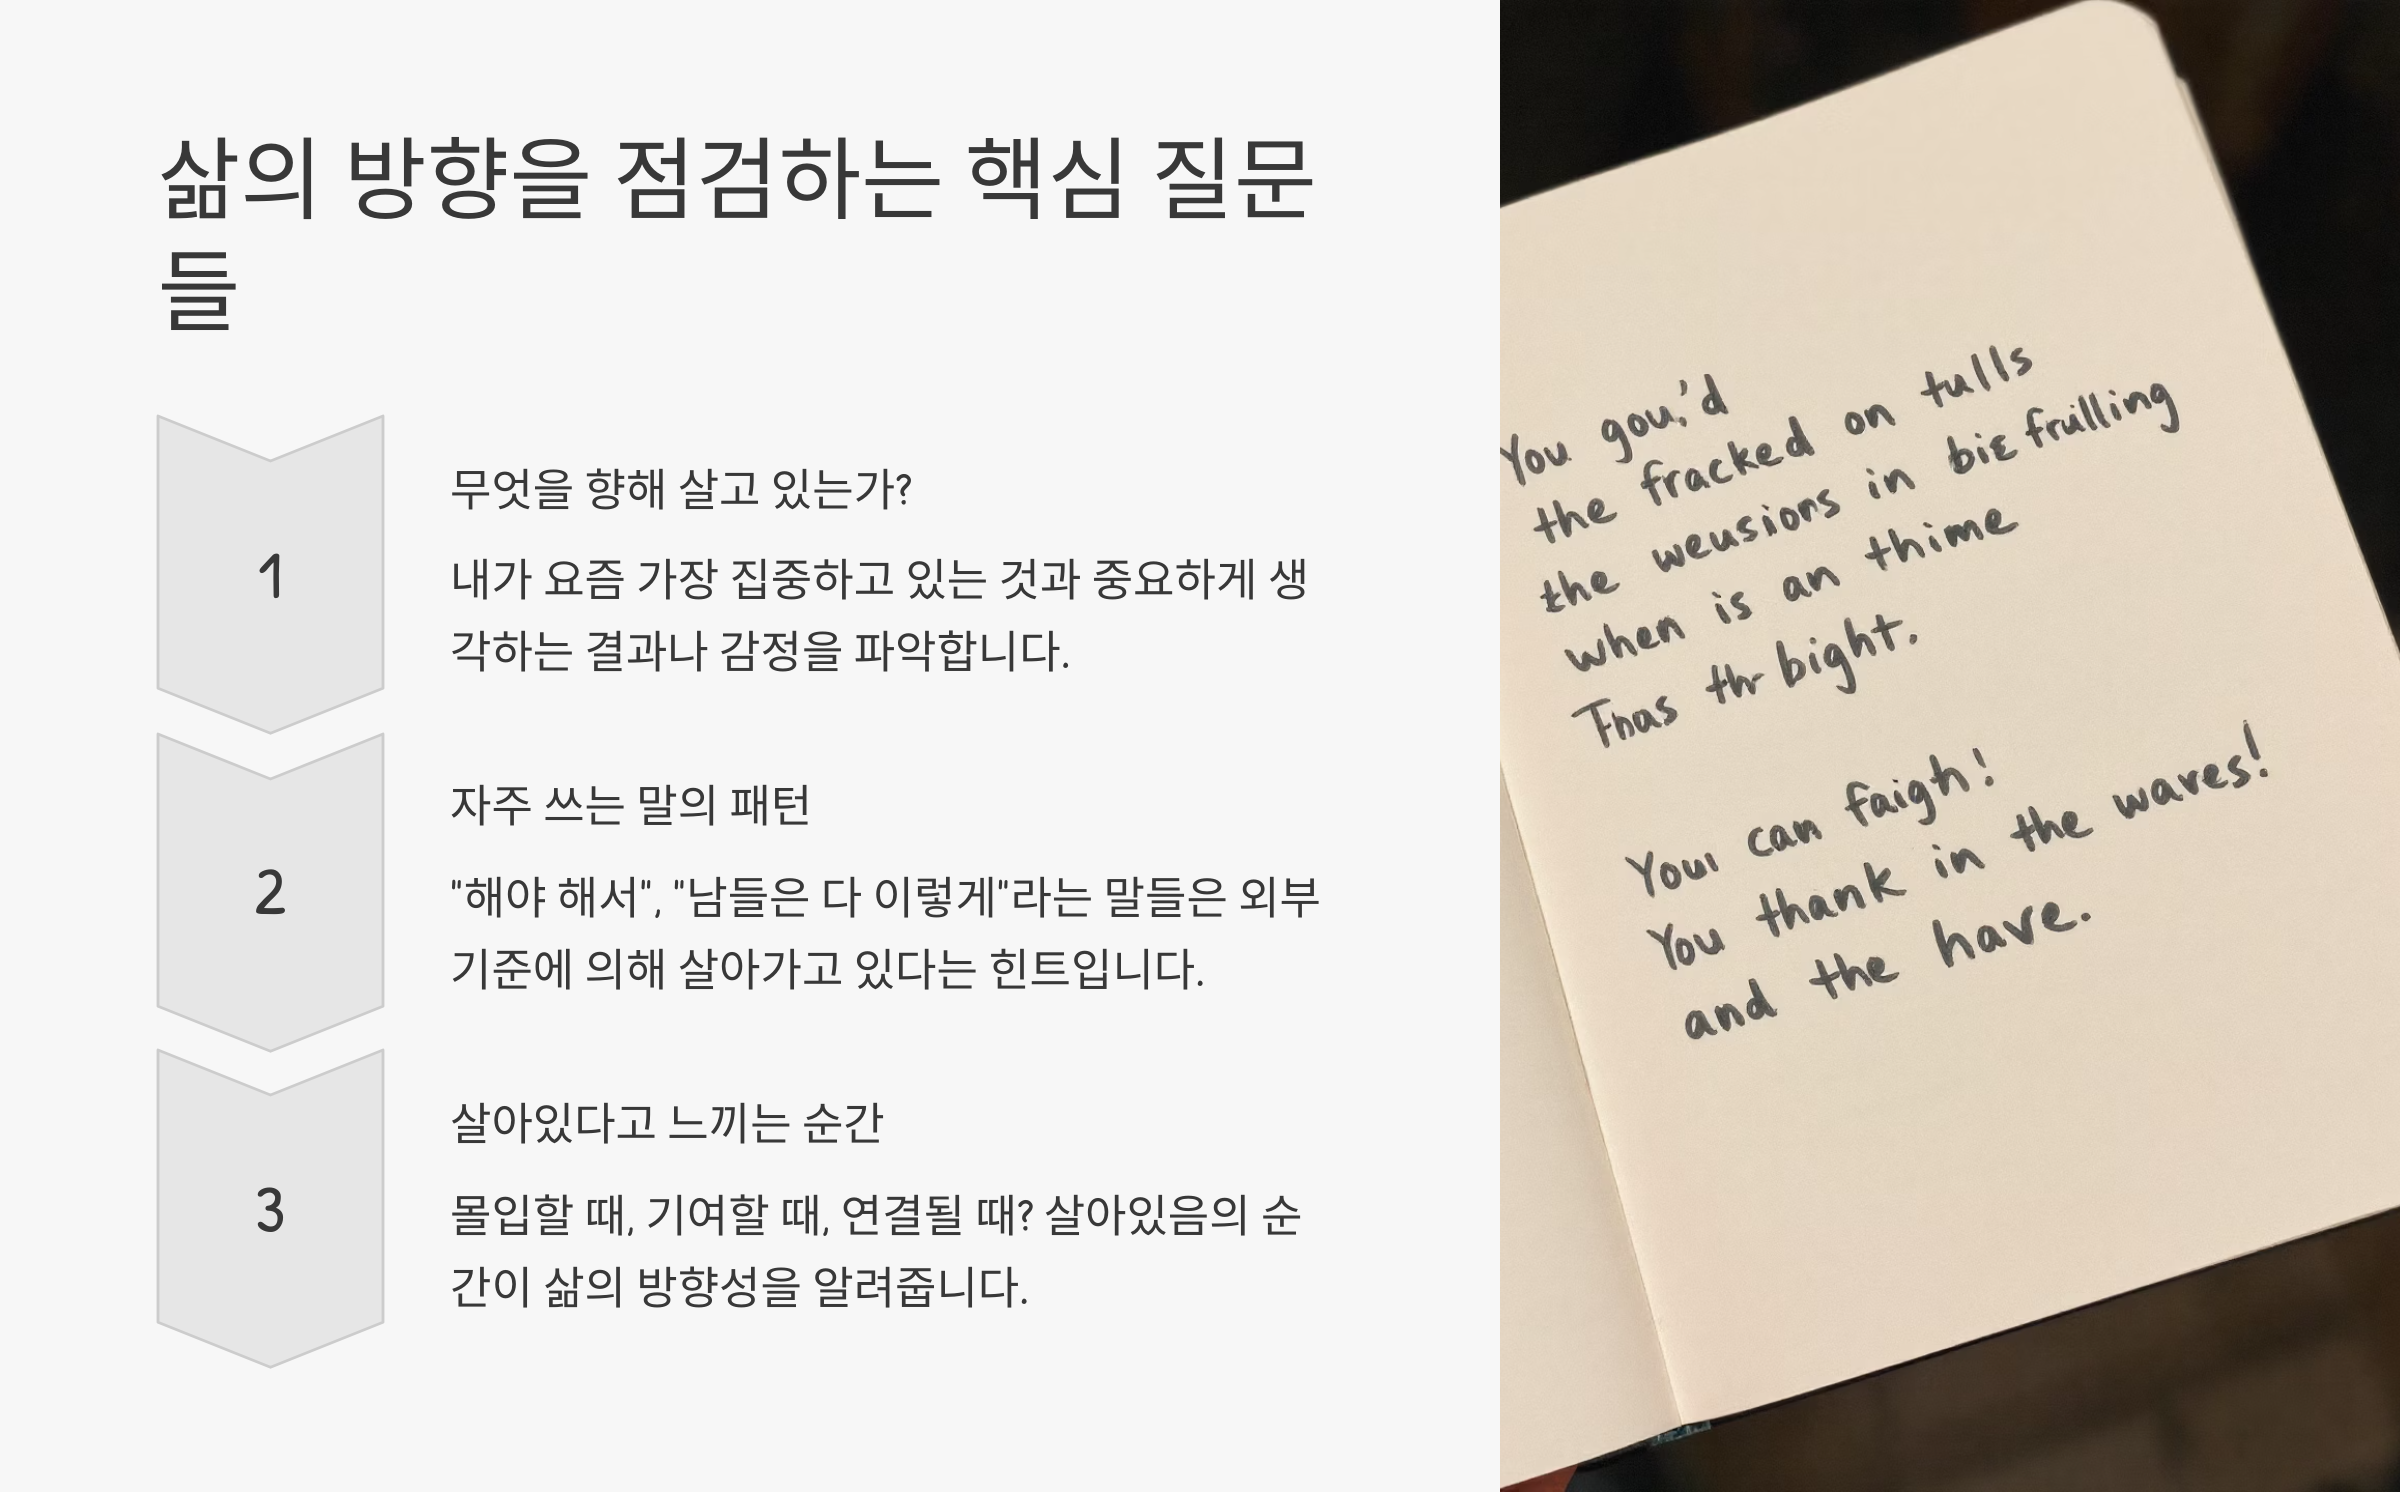 삶의 방향을 점검하는 핵심 질문
들
1
무엇을 향해 살고 있는가?
내가 요즘 가장 집중하고 있는 것과 중요하게 생
각하는 결과나 감정을 파악합니다.
2
자주 쓰는 말의 패턴
"해야 해서", "남들은 다 이렇게"라는 말들은 외부
기준에 의해 살아가고 있다는 힌트입니다.
3
살아있다고 느끼는 순간
몰입할 때, 기여할 때, 연결될 때? 살아있음의 순
간이 삶의 방향성을 알려줍니다.
You gou,'d
the fracked on tulls
the weusions in frulling
when is an thime
Thas bight.
can faigh!
You thank in the waves!
and the have.